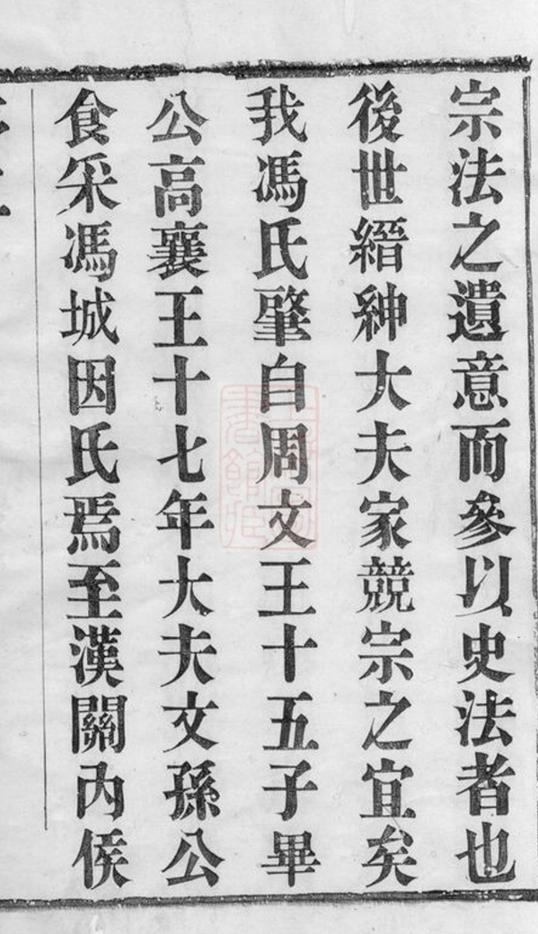 宗法之遺意而參以史法者也
後世縉紳大夫家競宗之宜矣
我馮氏肇自周文王十五子畢
公高襄王十七年大夫文孫公
食采馮城因氏焉至漢關內侯